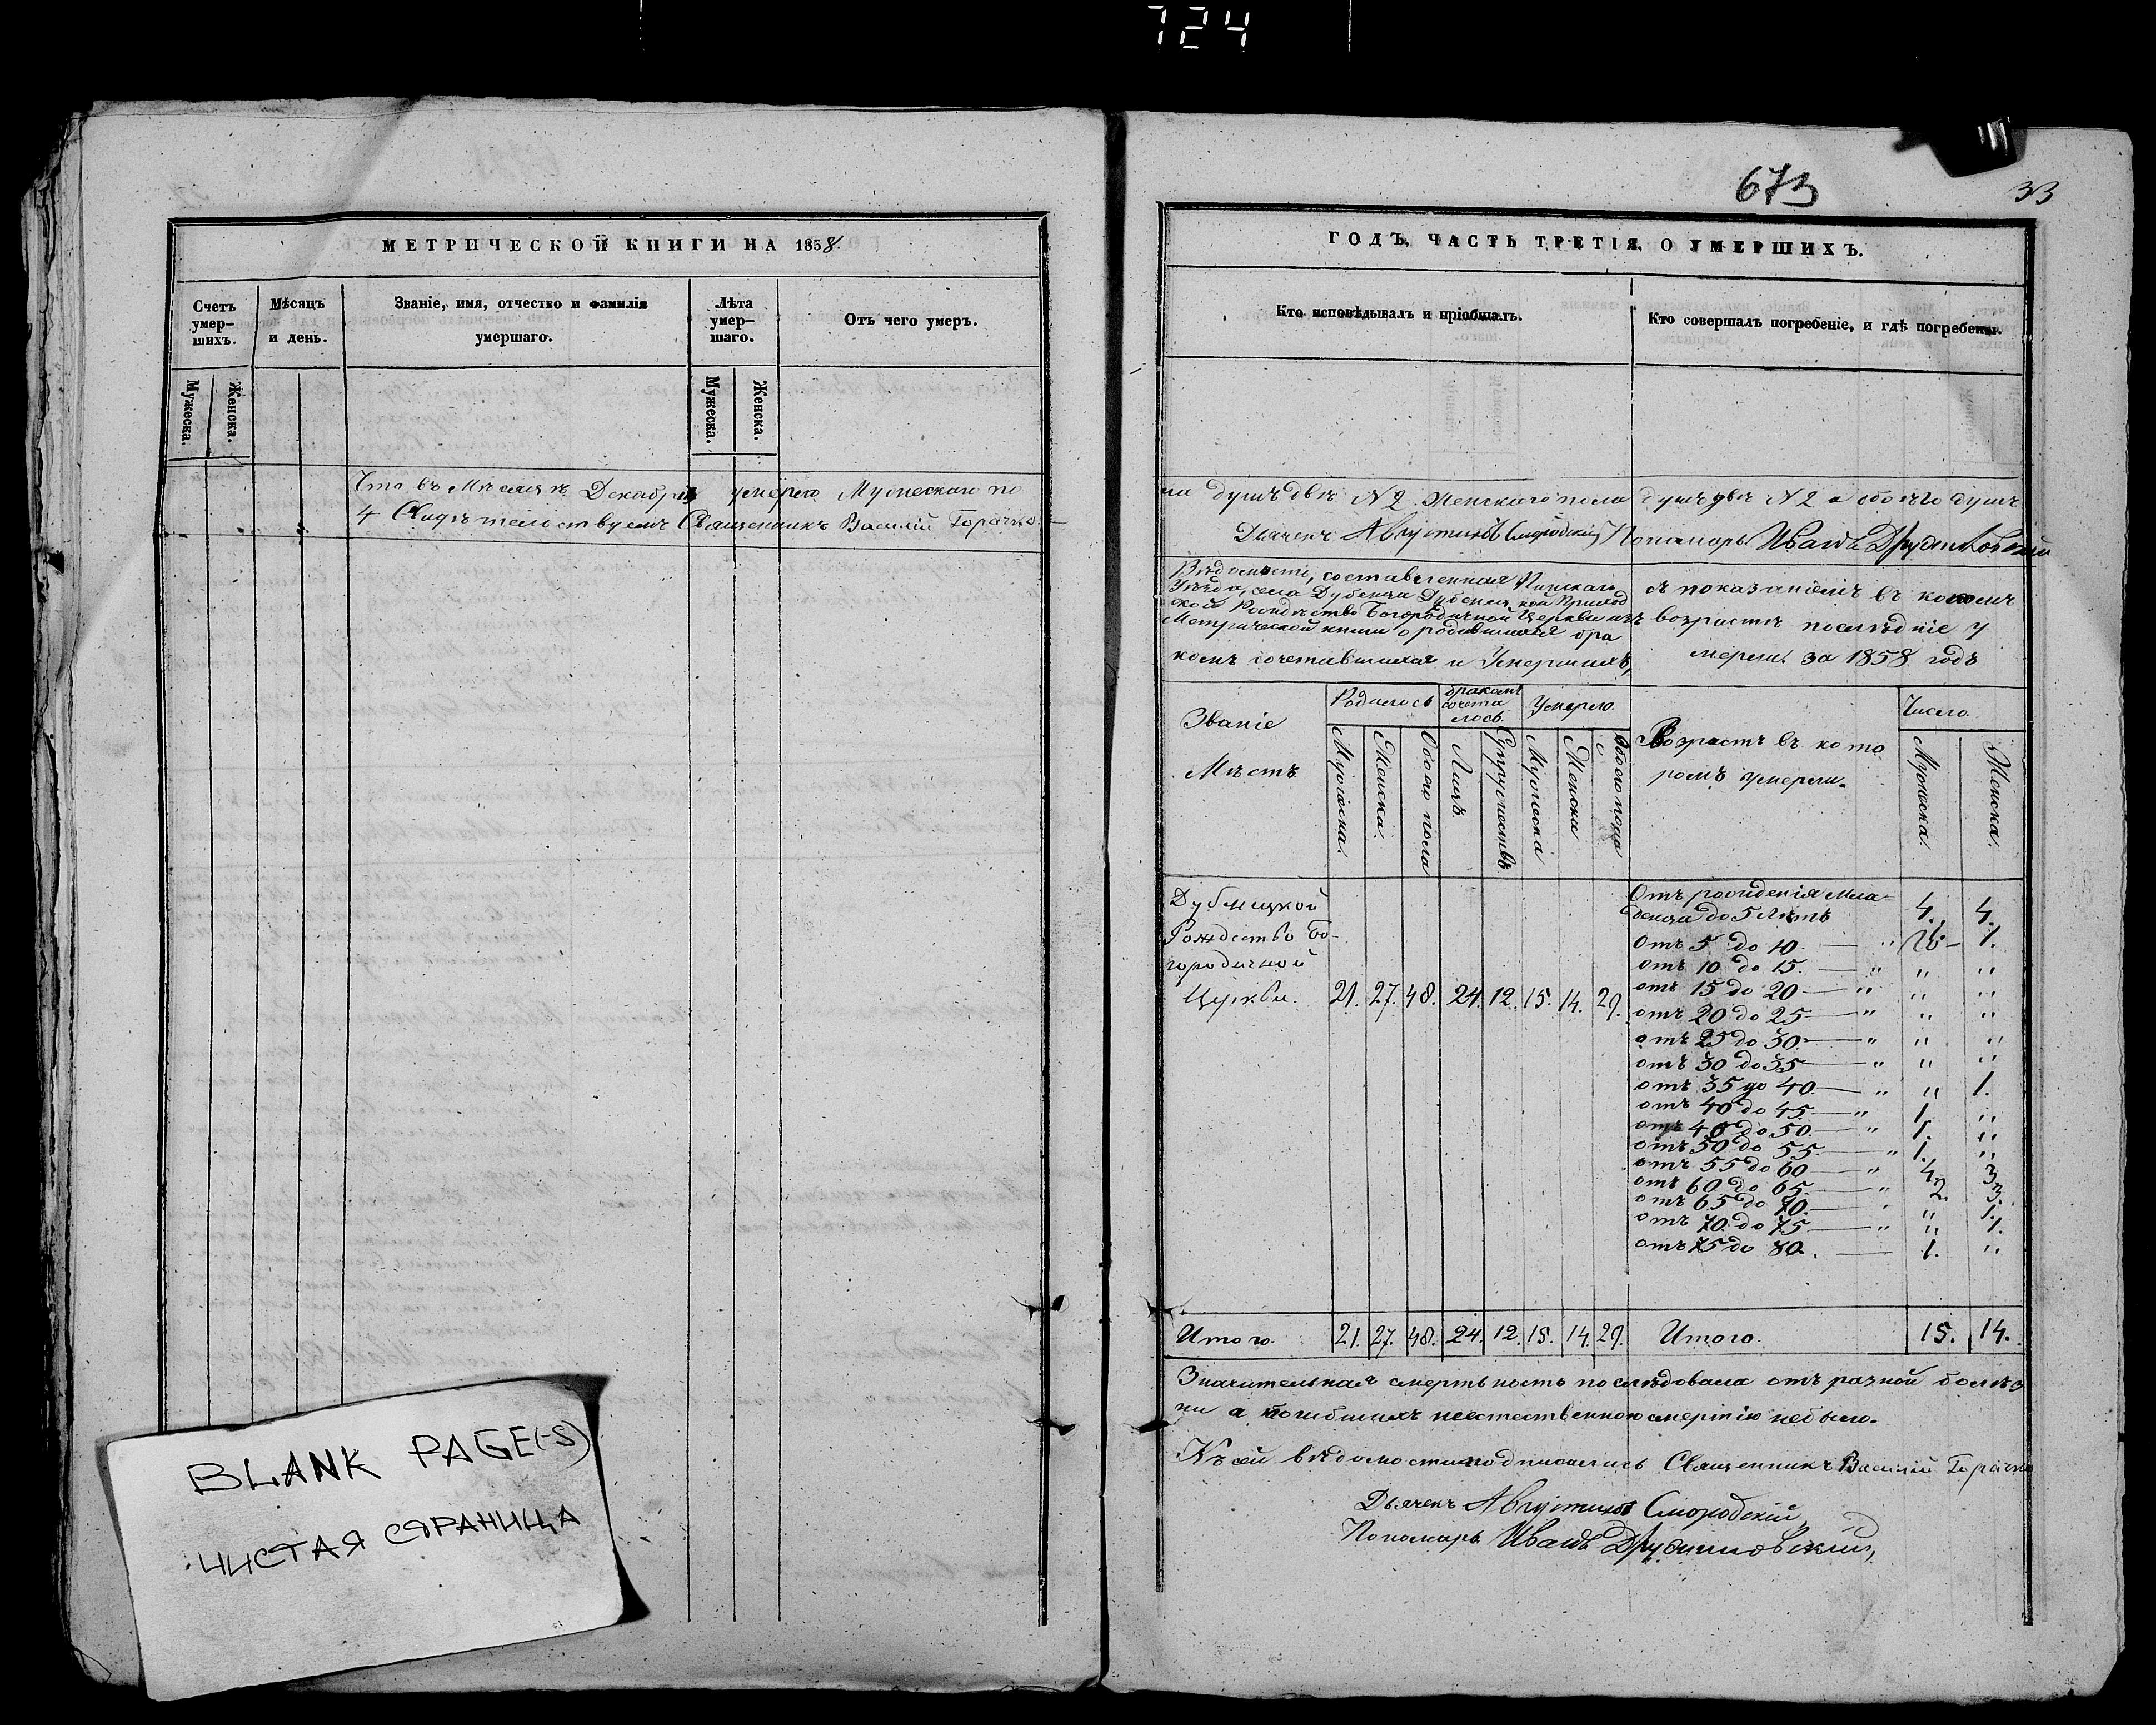 724
МЕТРИЧЕСКОЙ КНИГИ НА 1858
Счетъ умер-шихъ.
Мѣсяцъ и день.
Званіе, имя, отчество и фамилія умершаго.
Лѣта умер-шаго.
Отъ чего умеръ.
Мужеска.
Женска.
Мужеска.
Женска.
Что въ Мѣсяцѣ Декабрѣ умерло Мужескаго по
4 Свидѣтельствуемъ Священникъ Василій
BLANK PAGE(-S)
ЧИСТАЯ СЯРАНИЦА
673
33
ГОДЪ, ЧАСТЬ ТРЕТІЯ, О УМЕРШИХЪ.
Кто исповѣдывалъ и пріобщалъ.
Кто совершалъ погребеніе, и гдѣ погребены.
ла душъ двѣ N 2 Женскаго пола душъ двѣ N 2 а обоего душъ
Дьячекъ Августинъ Смородскій Пономарь Иванъ
Вѣдомость, составленная Пинскаго
Уѣзда, села Приход
ской Рождество Богородичной Церкви изъ
Метрической книги о родившихся бра
комъ сочетавшихся и Умершихъ,
съ показаніемъ въ какомъ
возрастѣ послѣдніе у
мерли за 1858 годъ
Званіе
Мѣстъ
Родилось
бракомъ сочета лось
Умерло
Возрастъ въ кото
ромъ умерли.
Число
Мужеска.
Женска.
Обоего пола
Лицъ
Супружествъ
Мужеска
Женска
Обоего пола
Мужеска.
Женска.
Дубницкой
Рождество Бо-
городичной
Церкви. 21. 27. 48. 24. 12. 15. 14. 29.
Отъ рожденія Мла-
денца до 5 Лѣтъ 4. 4.
Отъ 5 до 10. — 1.
отъ 10 до 15. — " " "
отъ 15 до 20 — " " "
отъ 20 до 25 — " " "
отъ 25 до 30 — " " "
отъ 30 до 35 — " " "
отъ 35 до 40. — " " 1.
отъ 40 до 45. — " 1. "
отъ 45 до 50. — " 1. "
отъ 50 до 55. — " 1. "
отъ 55 до 60 — " 4. 3
отъ 60 до 65. — " 2. 3.
отъ 65 до 70. — " " 1.
отъ 70 до 75 — " " 1.
отъ 75 до 80. — 1. "
Итого. 21. 27. 48. 24. 12. 15. 14. 29. Итого. 15. 14.
Значительная смертьность послѣдовала отъ разной болѣз
ни а погибшихъ неестественною смертію небыло.
Къ сей вѣдомости подписались Священникъ Василій
Дьячекъ Августинъ Смородскій
Пономарь Иванъ